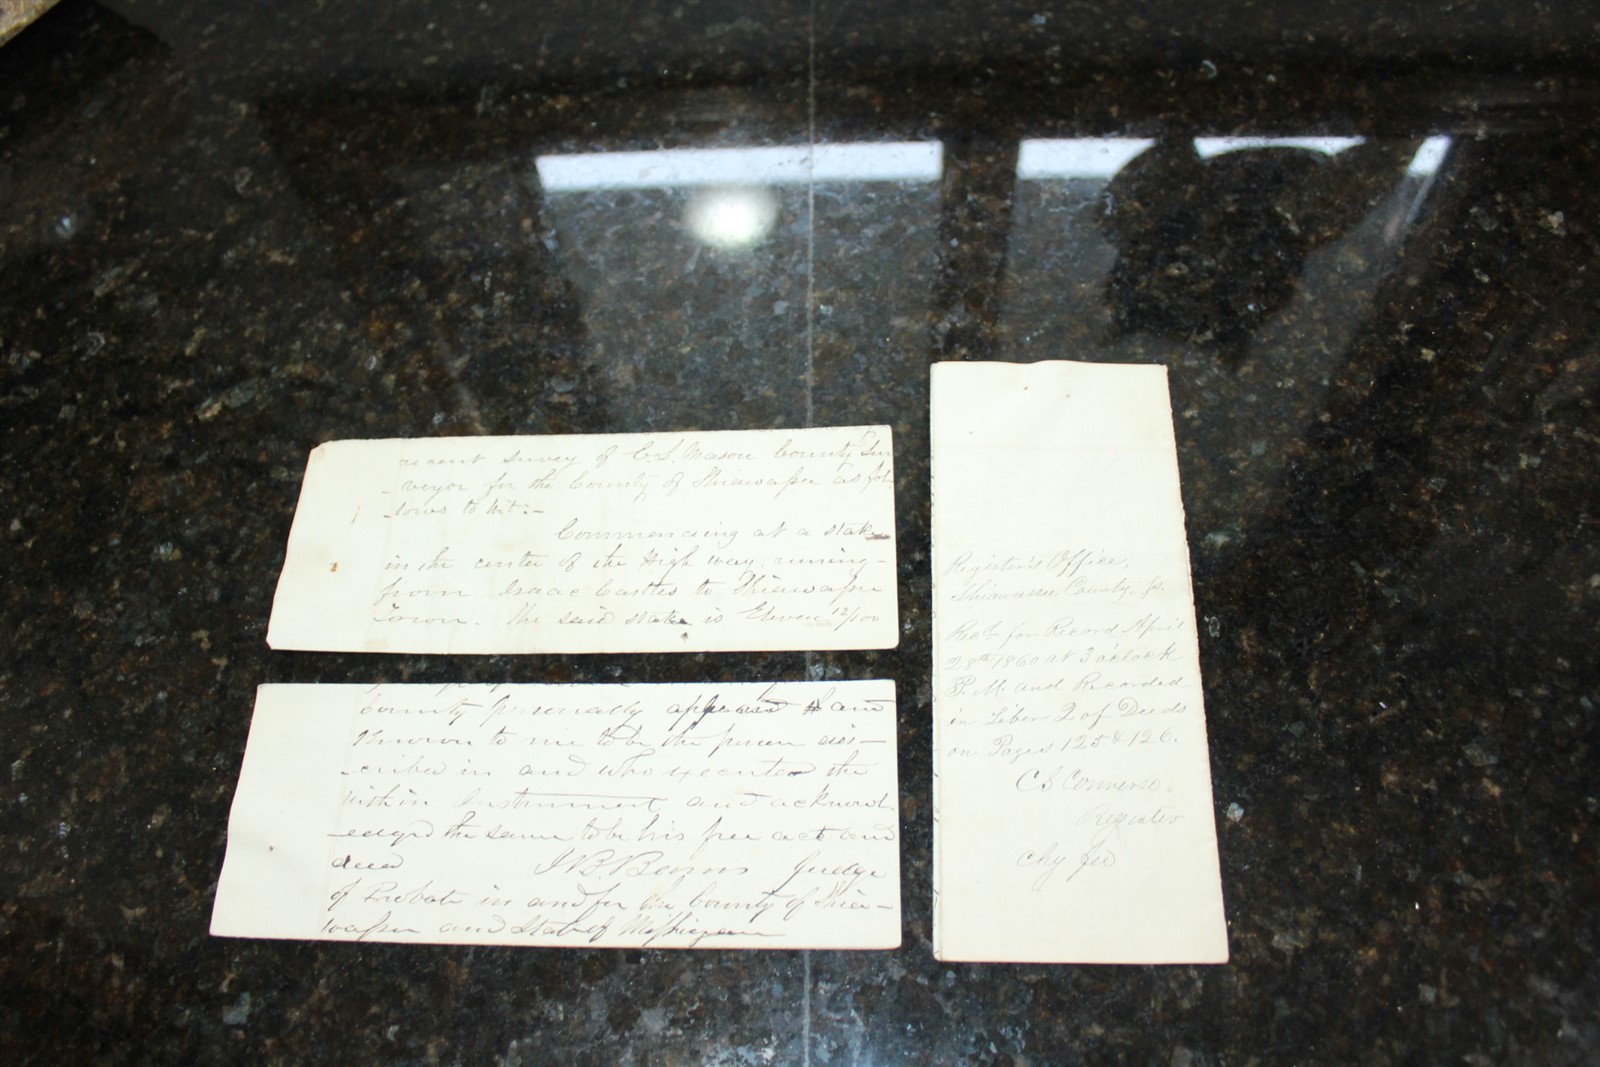 recent survey of C. S. Mason County Sur
-veyor for the County of Shiawassee as fol-
-lows to wit:-
Commencing at a stake
in the center of the High way, running-
from Isaac Castles to Shiawassee
Town. The said stake is Eleven 12/100
County personally appeared and
Known to me to be the person des-
-cribed in and who executed the
within Instrument, and acknowl-
-edged the same to be his free act and
deed J. B. Barns Judge
of Probate in and for the County of Shia-
wassee and State of Michigan
Register's Office,
Shiawassee County, ss.
Rec'd for Record April
28th 1860 at 3 o'clock
P. M. and Recorded
in Liber 2 of Deeds
on Pages 125 & 126.
C S Converse
Register